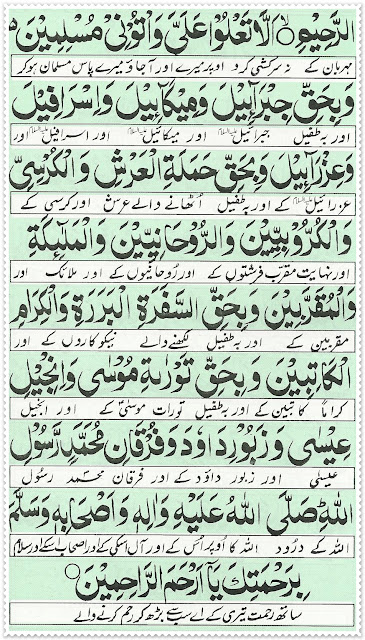 الرَّحِيْمِ ۙ اَلَّا تَعْلُوْا عَلَيَّ وَاْتُوْنِيْ مُسْلِمِيْنَ
مہربان کے نہ سرکشی کرو اوپر میرے اور آجاؤ میرے پاس مسلمان ہوکر
وَبِحَقِّ جِبْرَآئِيْلَ وَمِيْكَآئِيْلَ وَاِسْرَافِيْلَ
اور بہ طفیل جبرائیل علیہ السلام اور میکائیل علیہ السلام اور اسرافیل علیہ السلام
وَعِزْرَآئِيْلَ وَبِحَقِّ حَمَلَةِ الْعَرْشِ وَالْكُرْسِيِّ
عزرائیل علیہ السلام کے اور بہ طفیل اُٹھانے والے عرش اور کرسی کے
وَالْكَرُوْبِيِّيْنَ وَالرُّوْحَانِيِّيْنَ وَالْمَلٰٓئِكَةِ
اور نہایت مقرب فرشتوں کے اور رُوحانیوں کے اور ملائک اور
وَالْمُقَرَّبِيْنَ وَبِحَقِّ السَّفَرَةِ الْبَرَرَةِ وَالْكِرَامِ
مقربین کے اور بہ طفیل لکھنے والے نیکوکاروں کے اور
الْكَاتِبِيْنَ وَبِحَقِّ تَوْرٰىةِ مُوْسٰى وَاِنْجِيْلِ
کراماً کاتبین کے اور بہ طفیل تورات موسیٰؑ کے اور انجیل
عِيْسٰى وَزَبُوْرِ دَاوٗدَ وَفُرْقَانِ مُحَمَّدٍ رَّسُوْلِ
عیسیٰ اور زبور داؤد کے اور فرقان محمد رسول
اللّٰهِ صَلَّى اللّٰهُ عَلَيْهِ وَاٰلِهٖ وَاَصْحَابِهٖ وَسَلَّمَ
اللہ کے درُود اللہ کا اُوپر اُنس کے اور آل اسکی کے اور اصحاب اسکے اور سلام
بِرَحْمَتِكَ يَآ اَرْحَمَ الرَّاحِمِيْنَ ۝
ساتھ رحمت تیری کے اے سب سے بڑھ کر رحم کرنے والے